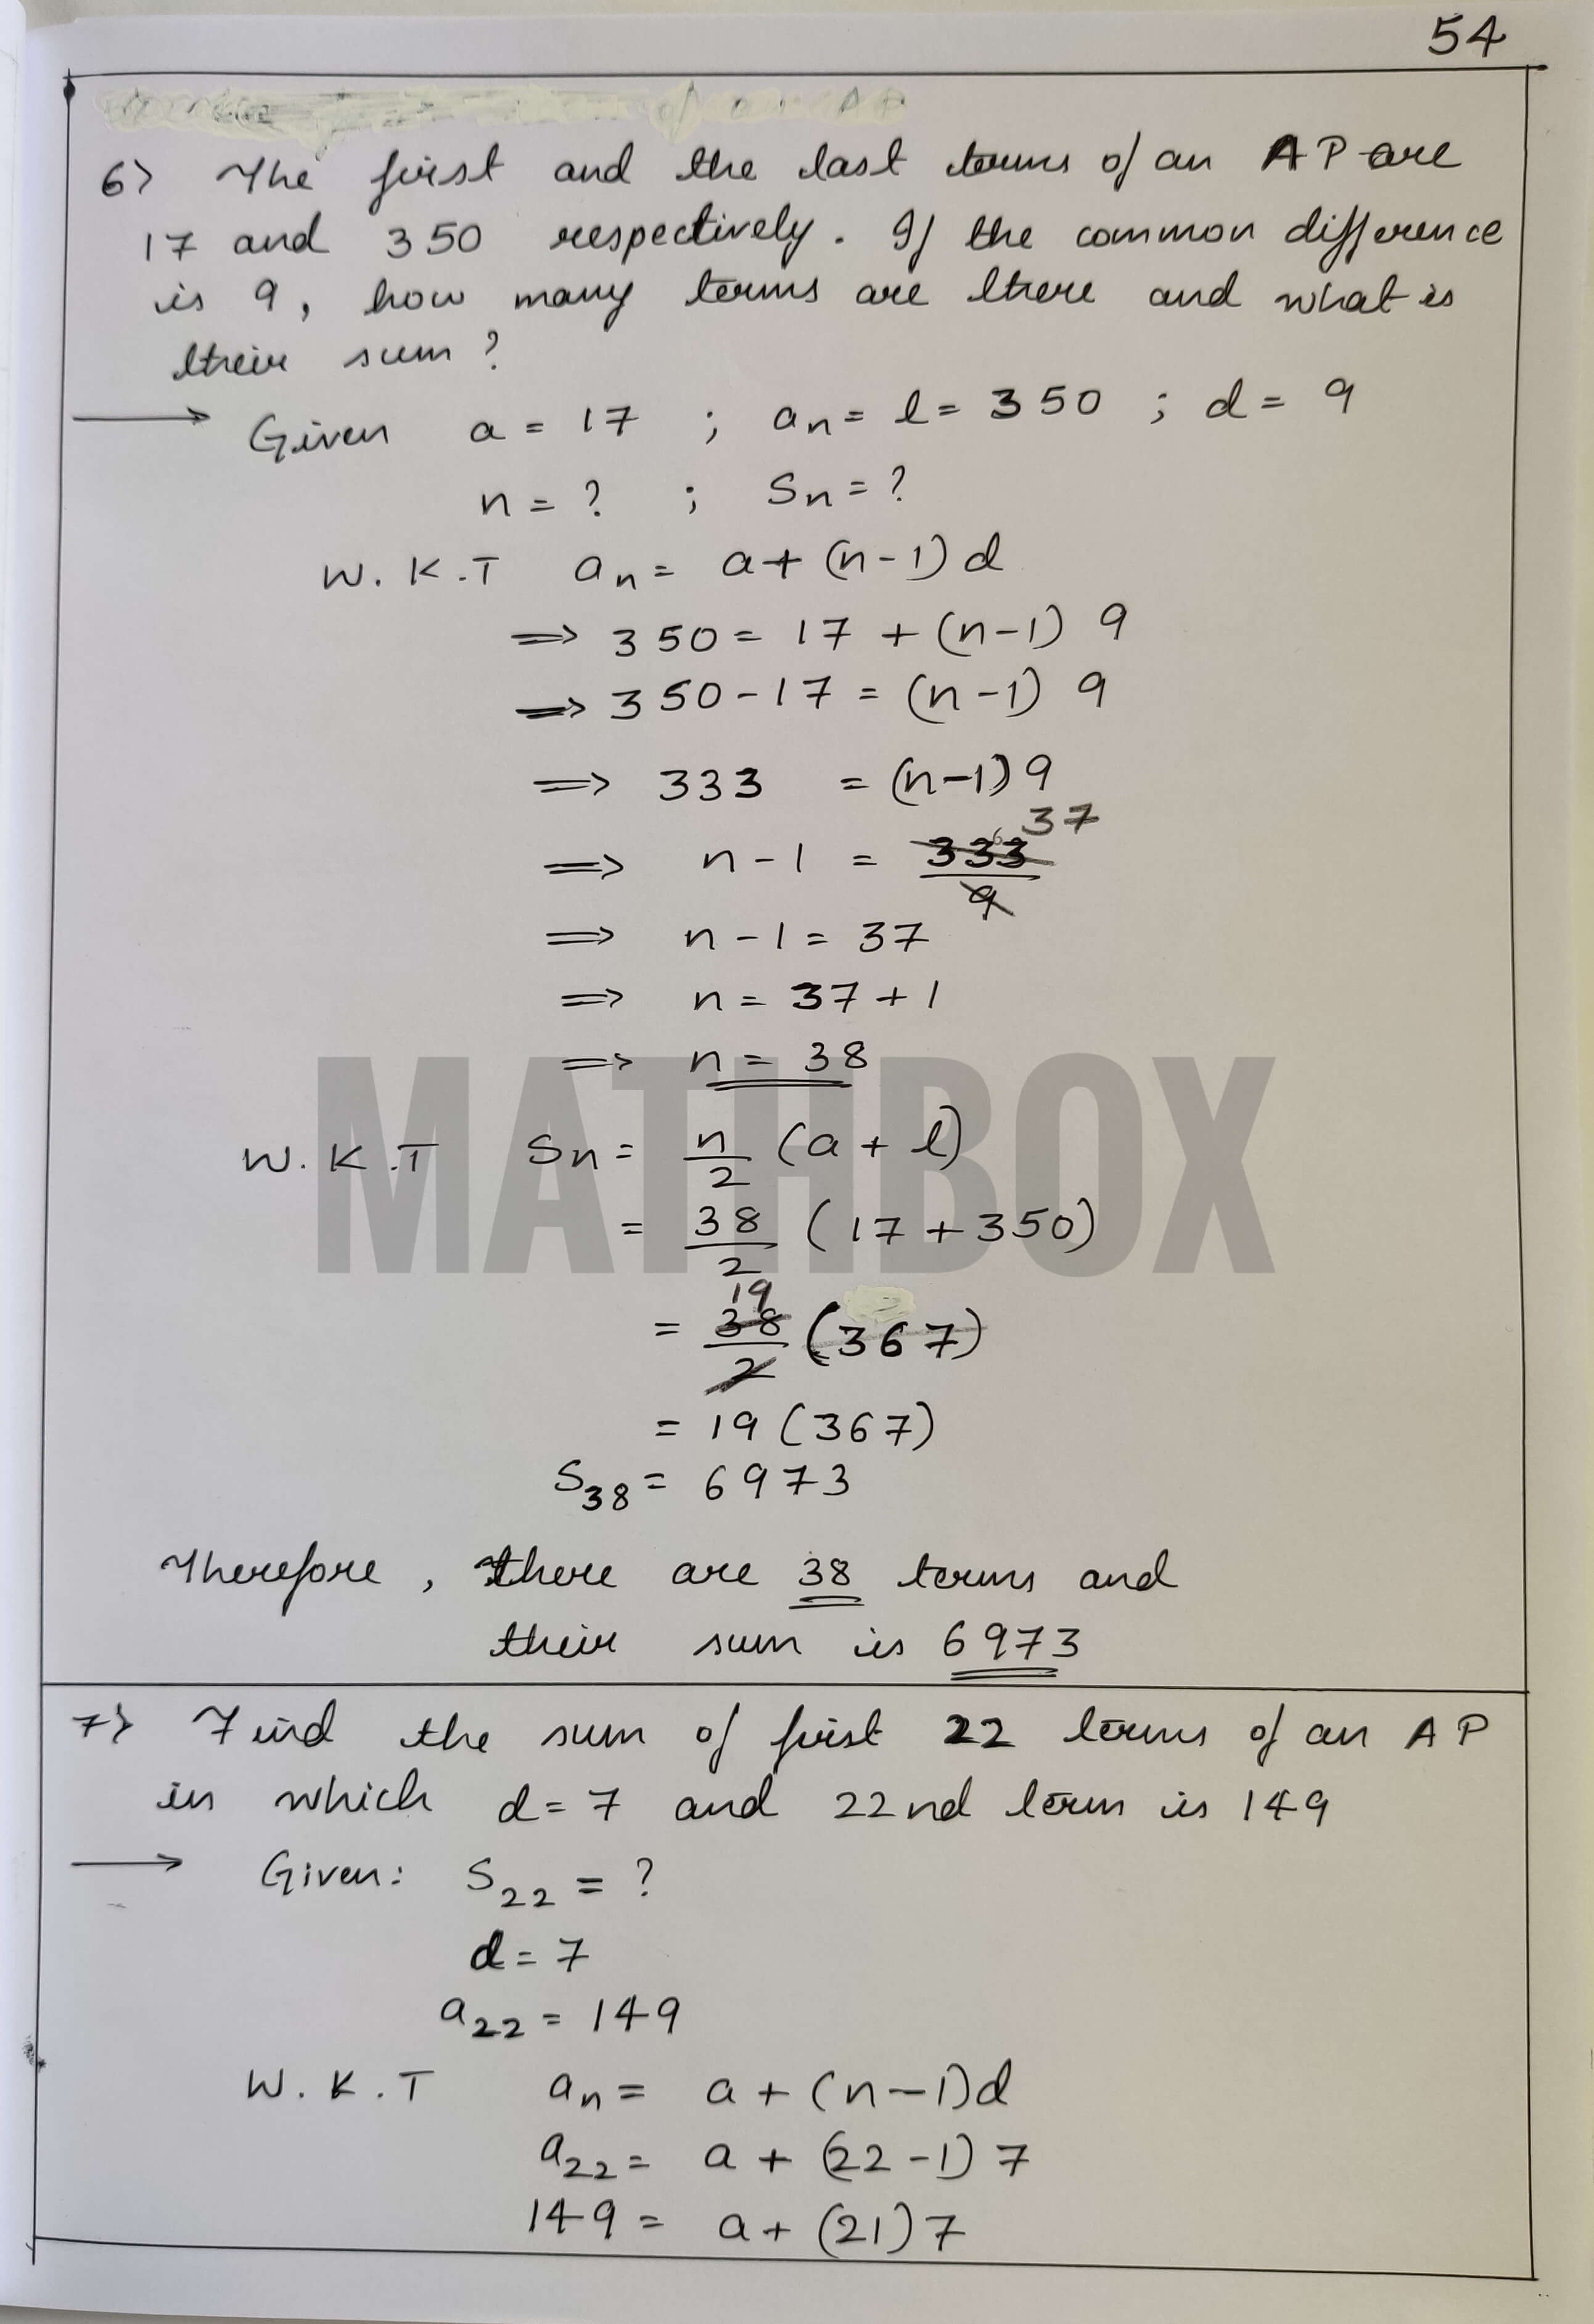 54
of an AP
6> The first and the last terms of an AP are
17 and 350 respectively. If the common difference
is 9, how many terms are there and what is
their sum?
⟶ Given a = 17 ; an = l = 350 ; d = 9
n = ? ; Sn = ?
W.K.T an = a + (n-1) d
⇒ 350 = 17 + (n-1) 9
⇒ 350 - 17 = (n-1) 9
⇒ 333 = (n-1) 9
37
⇒ n - 1 = 333/9
⇒ n - 1 = 37
⇒ n = 37 + 1
⇒ n = 38
MATHBOX
W.K.T Sn = n/2 (a + l)
= 38/2 (17 + 350)
19
= 38/2 (367)
= 19 (367)
S38 = 6973
Therefore, there are 38 terms and
their sum is 6973
7> Find the sum of first 22 terms of an AP
in which d = 7 and 22nd term is 149
⟶ Given: S22 = ?
d = 7
a22 = 149
W.K.T an = a + (n-1)d
a22 = a + (22-1) 7
149 = a + (21) 7